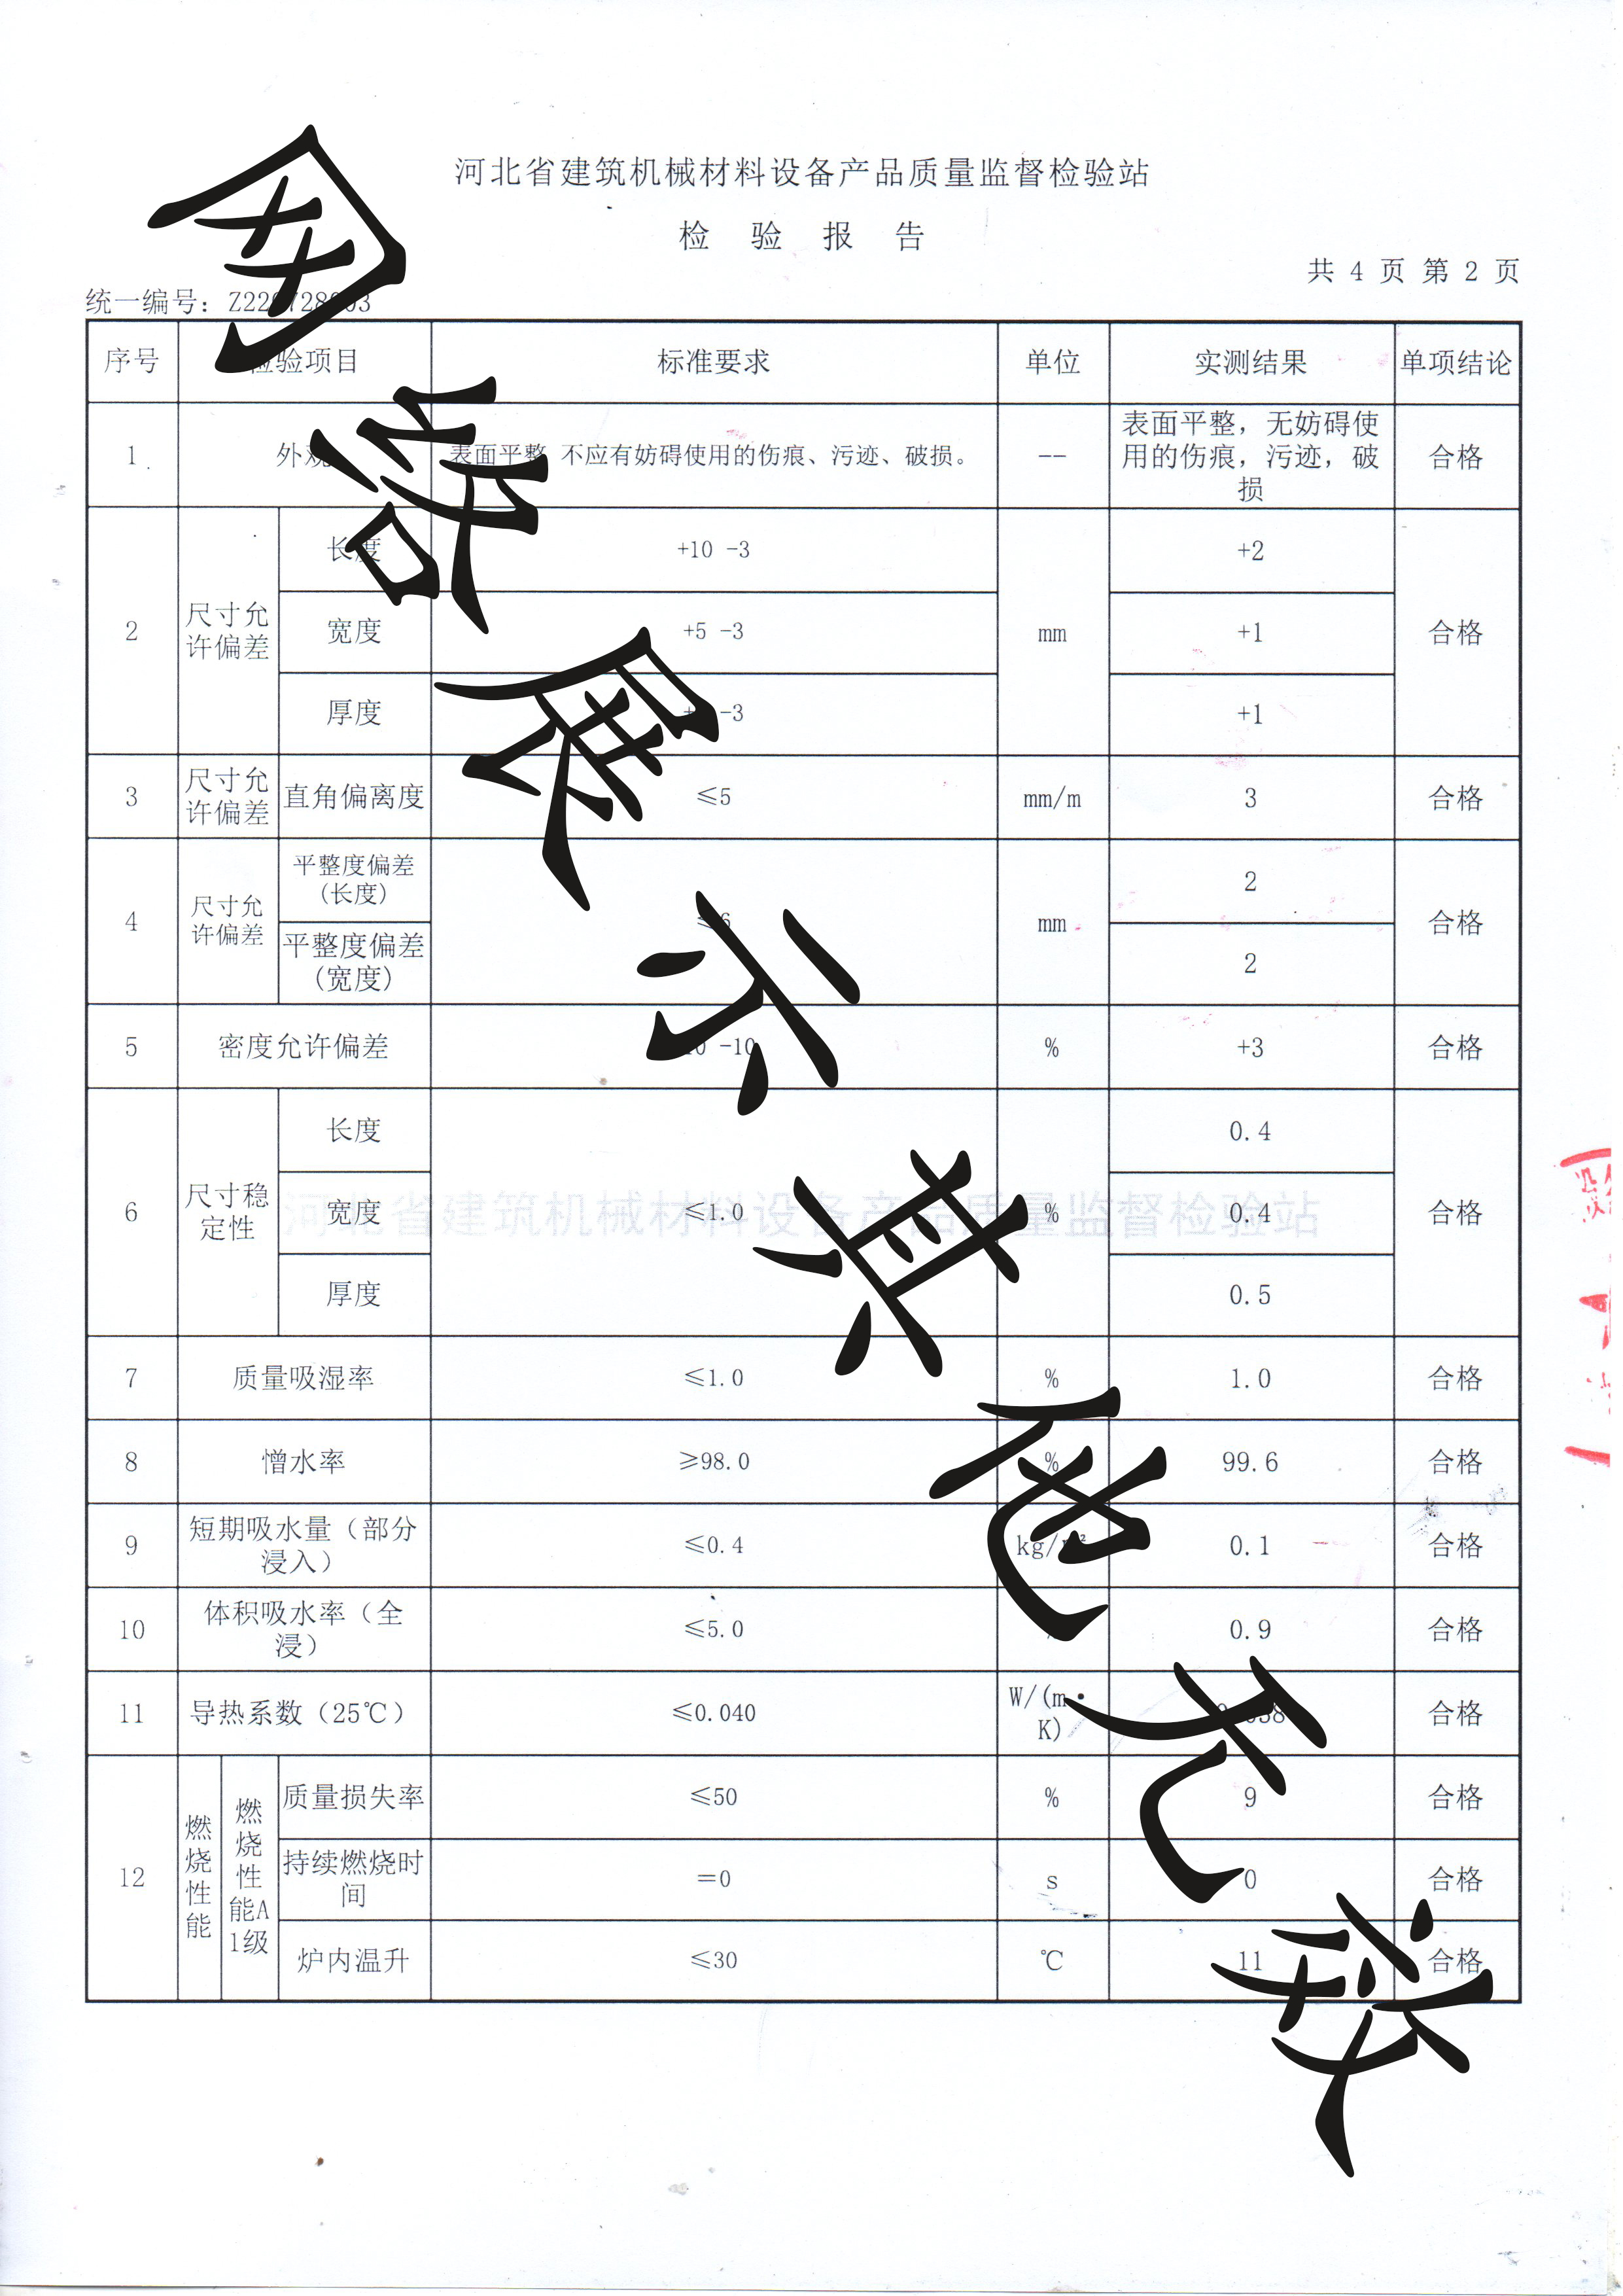 河北省建筑机械材料设备产品质量监督检验站
检 验 报 告
共 4 页 第 2 页
统一编号:
序号 检验项目 标准要求 单位 实测结果 单项结论
1 外观 表面平整 不应有妨碍使用的伤痕、污迹、破损。 -- 表面平整,无妨碍使用的伤痕,污迹,破损 合格
2 尺寸允许偏差 长度 +10 -3 mm +2 合格
宽度 +5 -3 +1
厚度 -3 +1
3 尺寸允许偏差 直角偏离度 ≤5 mm/m 3 合格
4 尺寸允许偏差 平整度偏差(长度) ≤6 mm 2 合格
平整度偏差(宽度) 2
5 密度允许偏差 -10 % +3 合格
6 尺寸稳定性 长度 ≤1.0 % 0.4 合格
宽度 0.4
厚度 0.5
河北省建筑机械材料设备产品质量监督检验站
7 质量吸湿率 ≤1.0 % 1.0 合格
8 憎水率 ≥98.0 % 99.6 合格
9 短期吸水量(部分浸入) ≤0.4 0.1 合格
10 体积吸水率(全浸) ≤5.0 0.9 合格
11 导热系数(25℃) ≤0.040 W/(m·K) 合格
12 燃烧性能 燃烧性能A1级 质量损失率 ≤50 % 9 合格
持续燃烧时间 =0 s 0 合格
炉内温升 ≤30 ℃ 11 合格
网络展示其他无效